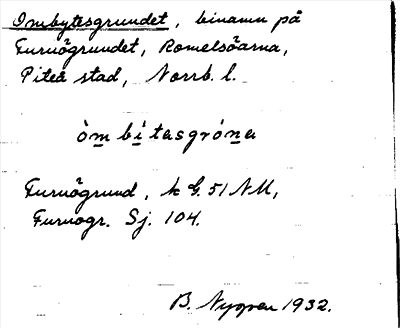 Ombytesgrundet, binamn på
Furuögrundet, Romelsöarna,
Piteå stad, Norrb. l.
òm bítasgróna
Furuögrund, k G. 51 NU,
Furuogr. Sj. 104.
B. Nygren 1932.